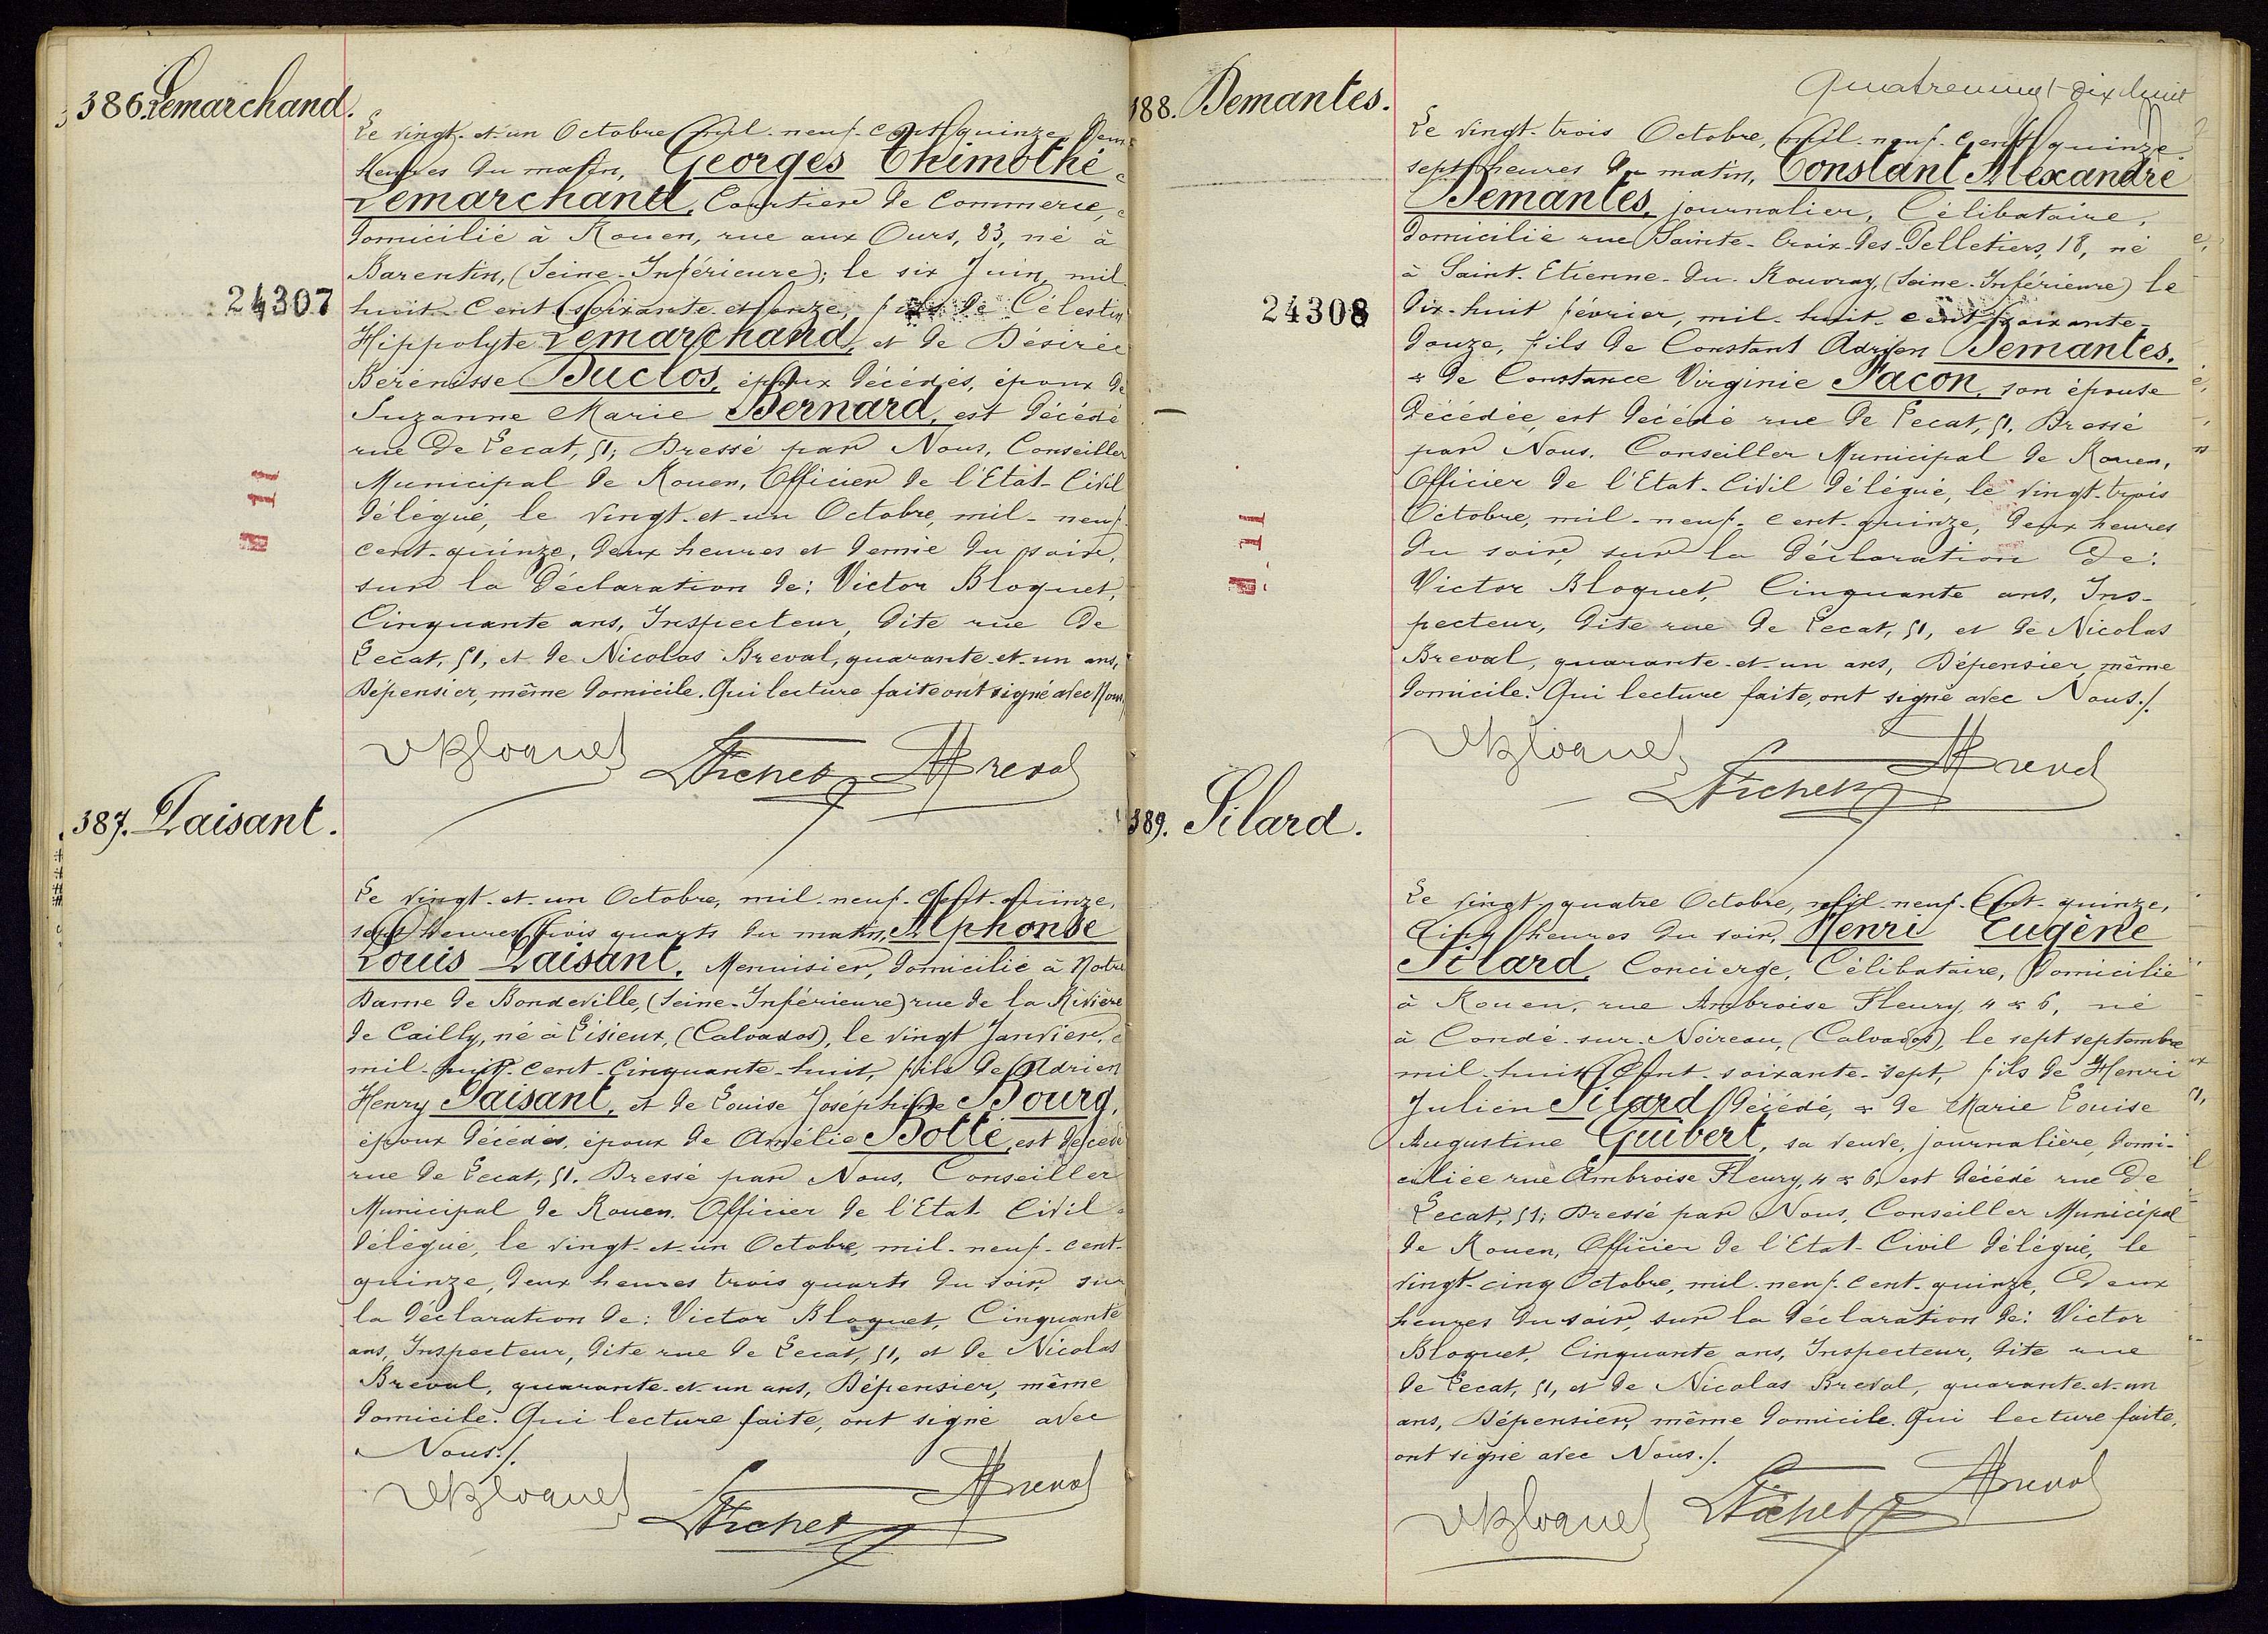 386. Lemarchand.
Le vingt-et-un Octobre, mil-neuf-cent-quinze,
heures du matin, Georges Thimothé
Lemarchand, Courtier de Commerce,
domicilié à Rouen, rue aux Ours, 83, né à
Barentin, (Seine-Inférieure); le six Juin, mil
24307
huit-cent-soixante-et-onze, fils de Célestin
Hippolyte Lemarchand, et de Désirée
Bérénisse Duclos, époux décédés, époux de
Suzanne Marie Bernard, est décédé
rue de Lecat, 51; Dressé par Nous, Conseiller
Municipal de Rouen, Officier de l'Etat-Civil
délégué, le vingt-et-un Octobre, mil-neuf-
cent-quinze, deux heures et demie du soir,
sur la déclaration de: Victor Bloquet,
Cinquante ans, Inspecteur, dite rue de
Lecat, 51, et de Nicolas Breval, quarante-et-un ans,
Dépensier, même domicile. Qui lecture faite ont signé avec Nous
VBloquet Fichet Breval
387. Laisant.
Le vingt-et-un Octobre, mil-neuf-cent-quinze,
sept heures trois quarts du matin, Alphonse
Louis Laisant, Menuisier, domicilié à Notre
Dame de Bondeville, (Seine-Inférieure) rue de la Rivière
de Cailly, né à Lisieux, (Calvados), le vingt Janvier,
mil-huit-cent-cinquante-huit, fils de Adrien
Henry Laisant, et de Louise Joséphine Bourg,
époux décédés, époux de Amélie Botté, est décédé
rue de Lecat, 51. Dressé par Nous, Conseiller
Municipal de Rouen, Officier de l'Etat Civil
délégué, le vingt-et-un Octobre, mil-neuf-cent-
quinze, deux heures trois quarts du soir, sur
la déclaration de: Victor Bloquet, Cinquante
ans, Inspecteur, dite rue de Lecat, 51, et de Nicolas
Breval, quarante-et-un ans, Dépensier, même
domicile. Qui lecture faite, ont signé avec
Nous./.
VBloquet Fichet Breval
Quatrevingt-dix huit
388. Demantes.
Le vingt-trois Octobre, mil-neuf-cent-quinze
sept heures du matin, Constant Alexandre
Demantes, journalier, Célibataire,
domicilié rue Sainte-Croix-des-Pelletiers, 18, né
à Saint-Etienne-du-Rouvray, (Seine-Inférieure) le
24308
dix-huit février, mil-huit-cent-soixante-
douze, fils de Constant Adrien Demantes,
& de Constance Virginie Facon, son épouse
décédée, est décédé rue de Lecat, 51. Dressé
par Nous, Conseiller Municipal de Rouen,
Officier de l'Etat-Civil délégué, le vingt-trois
Octobre, mil-neuf-cent-quinze, deux heures
du soir, sur la déclaration de:
Victor Bloquet, Cinquante ans, Ins-
pecteur, dite rue de Lecat, 51, et de Nicolas
Breval, quarante-et-un ans, Dépensier, même
domicile. Qui lecture faite, ont signé avec Nous./.
VBloquet Fichet Breval
389. Silard.
Le vingt-quatre Octobre, mil-neuf-cent-quinze,
Cinq heures du soir, Henri Eugène
Silard, Concierge, Célibataire, domicilié
à Rouen, rue Ambroise Fleury, 4 & 6, né
à Condé-sur-Noireau, (Calvados), le sept septembre
mil-huit-cent-soixante-sept, fils de Henri
Julien Silard, décédé, & de Marie Louise
Augustine Guibert, sa veuve, journalière, domi-
ciliée rue Ambroise Fleury, 4 & 6, est décédé rue de
Lecat, 51; Dressé par Nous, Conseiller Municipal
de Rouen, Officier de l'Etat-Civil délégué, le
vingt-cinq Octobre, mil-neuf-cent-quinze, deux
heures du soir, sur la déclaration de: Victor
Bloquet, Cinquante ans, Inspecteur, dite rue
de Lecat, 51, et de Nicolas Breval, quarante-et-un
ans, Dépensier, même domicile. Qui lecture faite,
ont signé avec Nous./.
VBloquet Fichet Breval